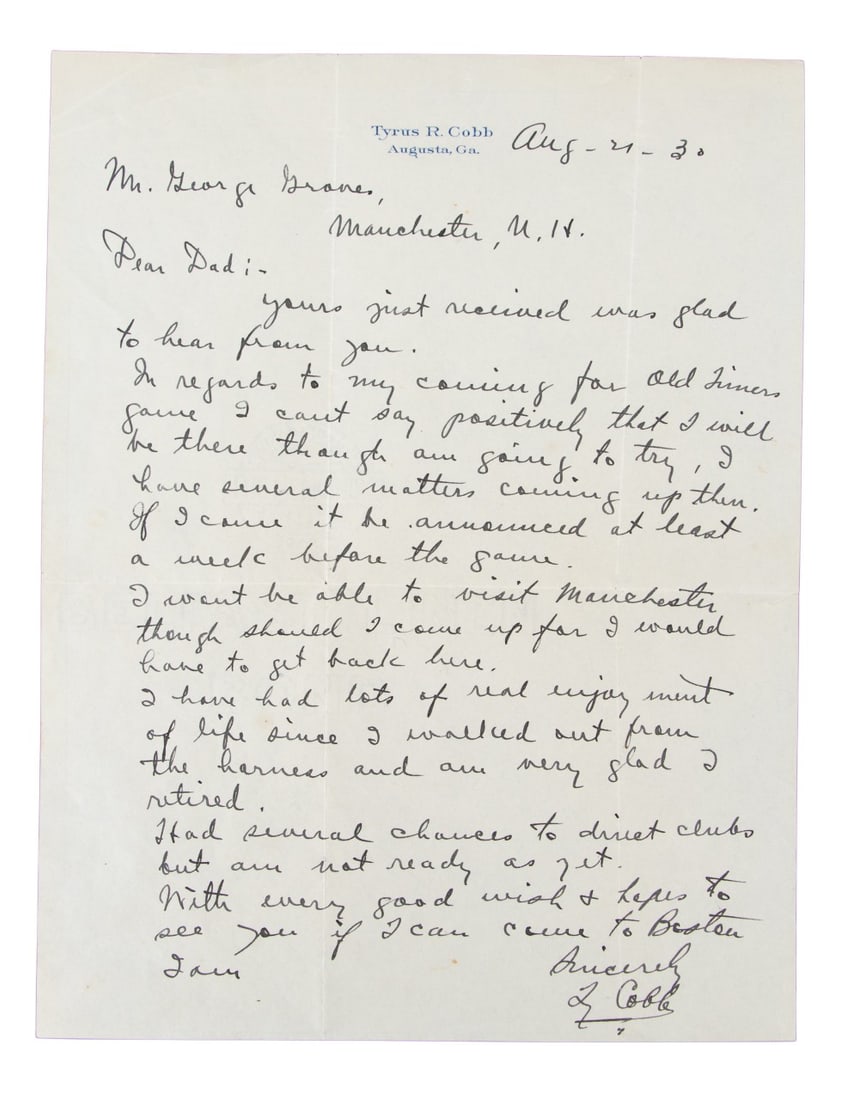 Tyrus R. Cobb
Augusta, Ga.
Aug - 21 - 30
Mr. George Graves,
Manchester, N. H.
Dear Dad ; -
yours just received was glad
to hear from you.
In regards to my coming for Old Timers
game I cant say positively that I will
be there though am going to try, I
have several matters coming up then.
If I come it be announced at least
a week before the game.
I wont be able to visit Manchester
though should I come up for I would
have to get back here.
I have had lots of real enjoyment
of life since I walked out from
the harness and am very glad I
retired.
Had several chances to direct clubs
but am not ready as yet.
With every good wish & hopes to
see you if I can come to Boston
I am
Sincerely
Ty Cobb